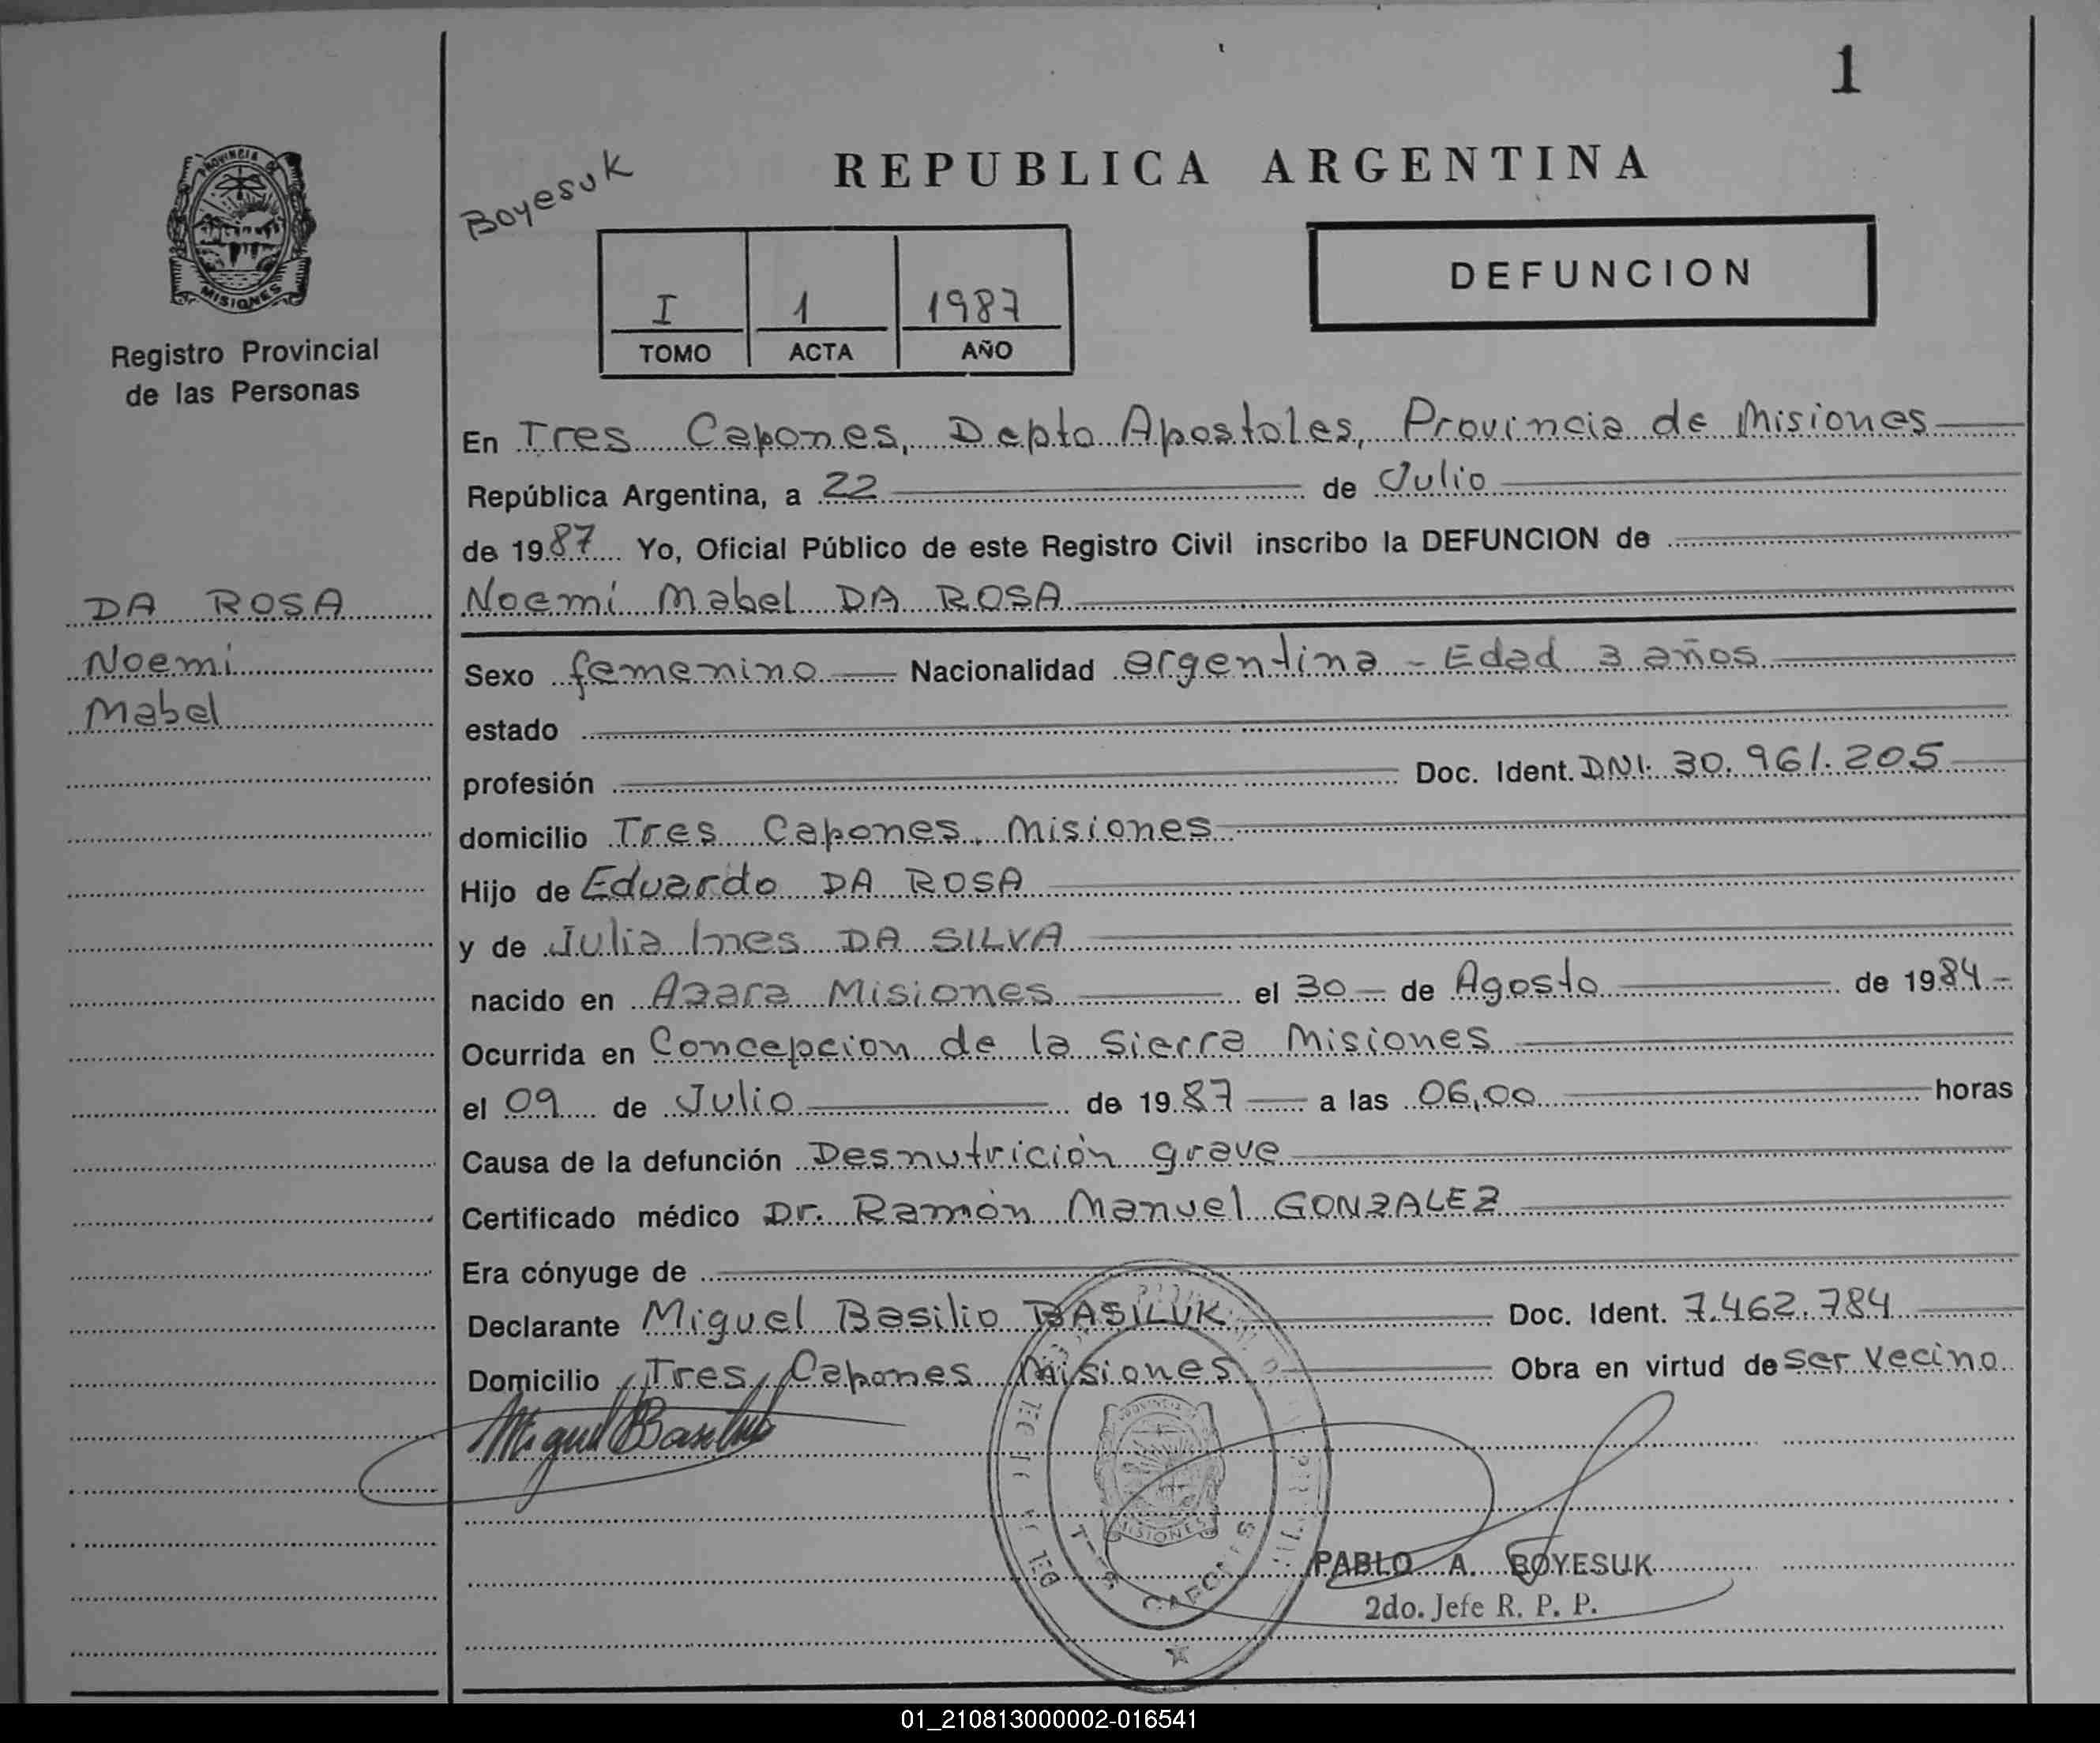 1
PROVINCIA DE
MISIONES
Registro Provincial
de las Personas
DA ROSA
Noemi
Mabel
Boyesuk
REPUBLICA ARGENTINA
I 1 1987
TOMO ACTA AÑO
DEFUNCION
En Tres Capones, Depto Apostoles, Provincia de Misiones
República Argentina, a 22 de Julio
de 1987 Yo, Oficial Público de este Registro Civil inscribo la DEFUNCION de
Noemí Mabel DA ROSA
Sexo femenino Nacionalidad argentina - Edad 3 años
estado
profesión Doc. Ident. DNI. 30.961.205
domicilio Tres Capones, Misiones
Hijo de Eduardo DA ROSA
y de Julia Ines DA SILVA
nacido en Azara Misiones el 30 de Agosto de 1984
Ocurrida en Concepcion de la Sierra Misiones
el 09 de Julio de 1987 a las 06,00 horas
Causa de la defunción Desnutrición grave
Certificado médico Dr. Ramón Manuel GONZALEZ
Era cónyuge de
Declarante Miguel Basilio BASILUK Doc. Ident. 7.462.784
Domicilio Tres Capones Misiones Obra en virtud de ser vecino
Miguel Basiluk
MISIONES
TRES CAPONES
PABLO A. BOYESUK
2do. Jefe R. P. P.
01_210813000002-016541